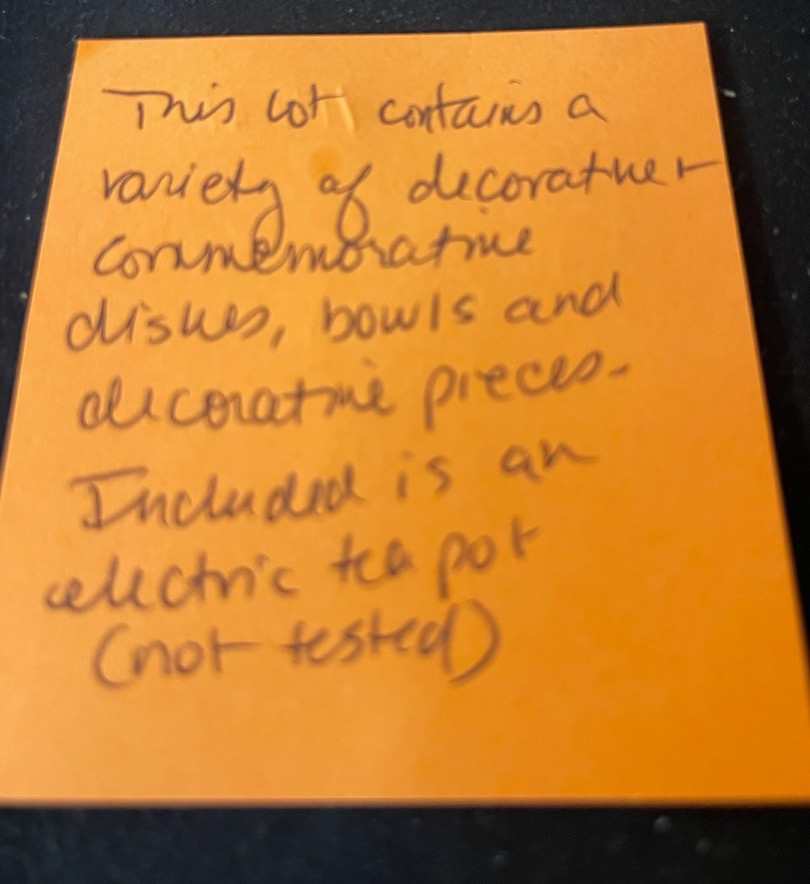 This lot contains a
variety of decorative +
commemorative
dishes, bowls and
decorative pieces.
Included is an
electric tea pot
(not tested)